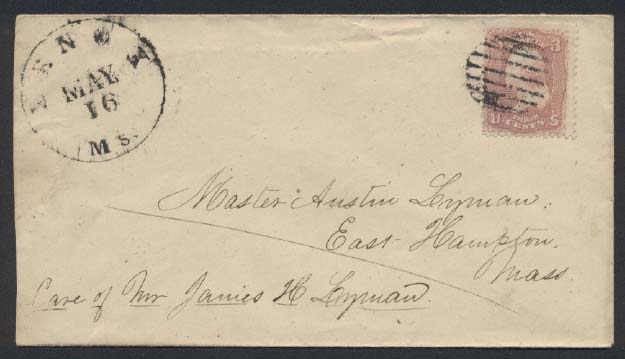 MAY
16
Ms.
3
U S
THREE
CENTS
Master Austin Lyman.
East Hampton.
Mass.
Care of Mr James H Lyman.